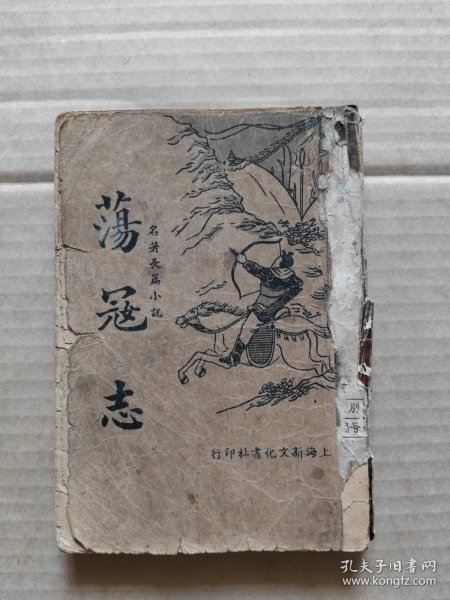 蕩寇志
名著長篇小說
上海新文化書社印行
孔夫子旧书网
www.kongfz.com